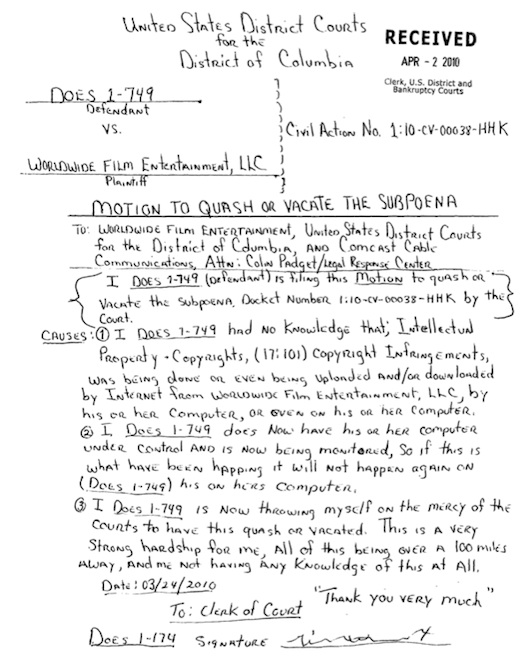 United States District Courts
for the
District of Columbia
RECEIVED
APR - 2 2010
Clerk, U.S. District and
Bankruptcy Courts
DOES 1-749
Defendant
vs.
Civil Action No. 1:10-CV-00038-HHK
WORLDWIDE FILM ENTERTAINMENT, LLC
Plaintiff
MOTION TO QUASH OR VACATE THE SUBPOENA
TO: WORLDWIDE FILM ENTERTAINMENT, United States District Courts
for the District of Columbia, AND Comcast Cable
Communications, Attn: Colin Padget/Legal Response Center
I DOES 1-749 (Defendant) is filing this Motion to quash or
Vacate the subpoena. Docket Number 1:10-CV-00038-HHK by the
Court.
CAUSES: ① I DOES 1-749 had no knowledge that; Intellectual
Property - Copyrights, (17:101) Copyright Infringements,
was being done or even being uploaded and/or downloaded
by Internet from Worldwide Film Entertainment, LLC, by
his or her computer, or even on his or her computer.
② I, Does 1-749 does now have his or her computer
under control and is now being monitored, so if this is
what have been happing it will not happen again on
(Does 1-749) his or hers computer.
③ I Does 1-749 is now throwing myself on the mercy of the
courts to have this quash or vacated. This is a very
strong hardship for me, all of this being over a 100 miles
away, and me not having any knowledge of this at all.
Date: 03/24/2010
"Thank you very much"
To: Clerk of Court
Does 1-174 Signature